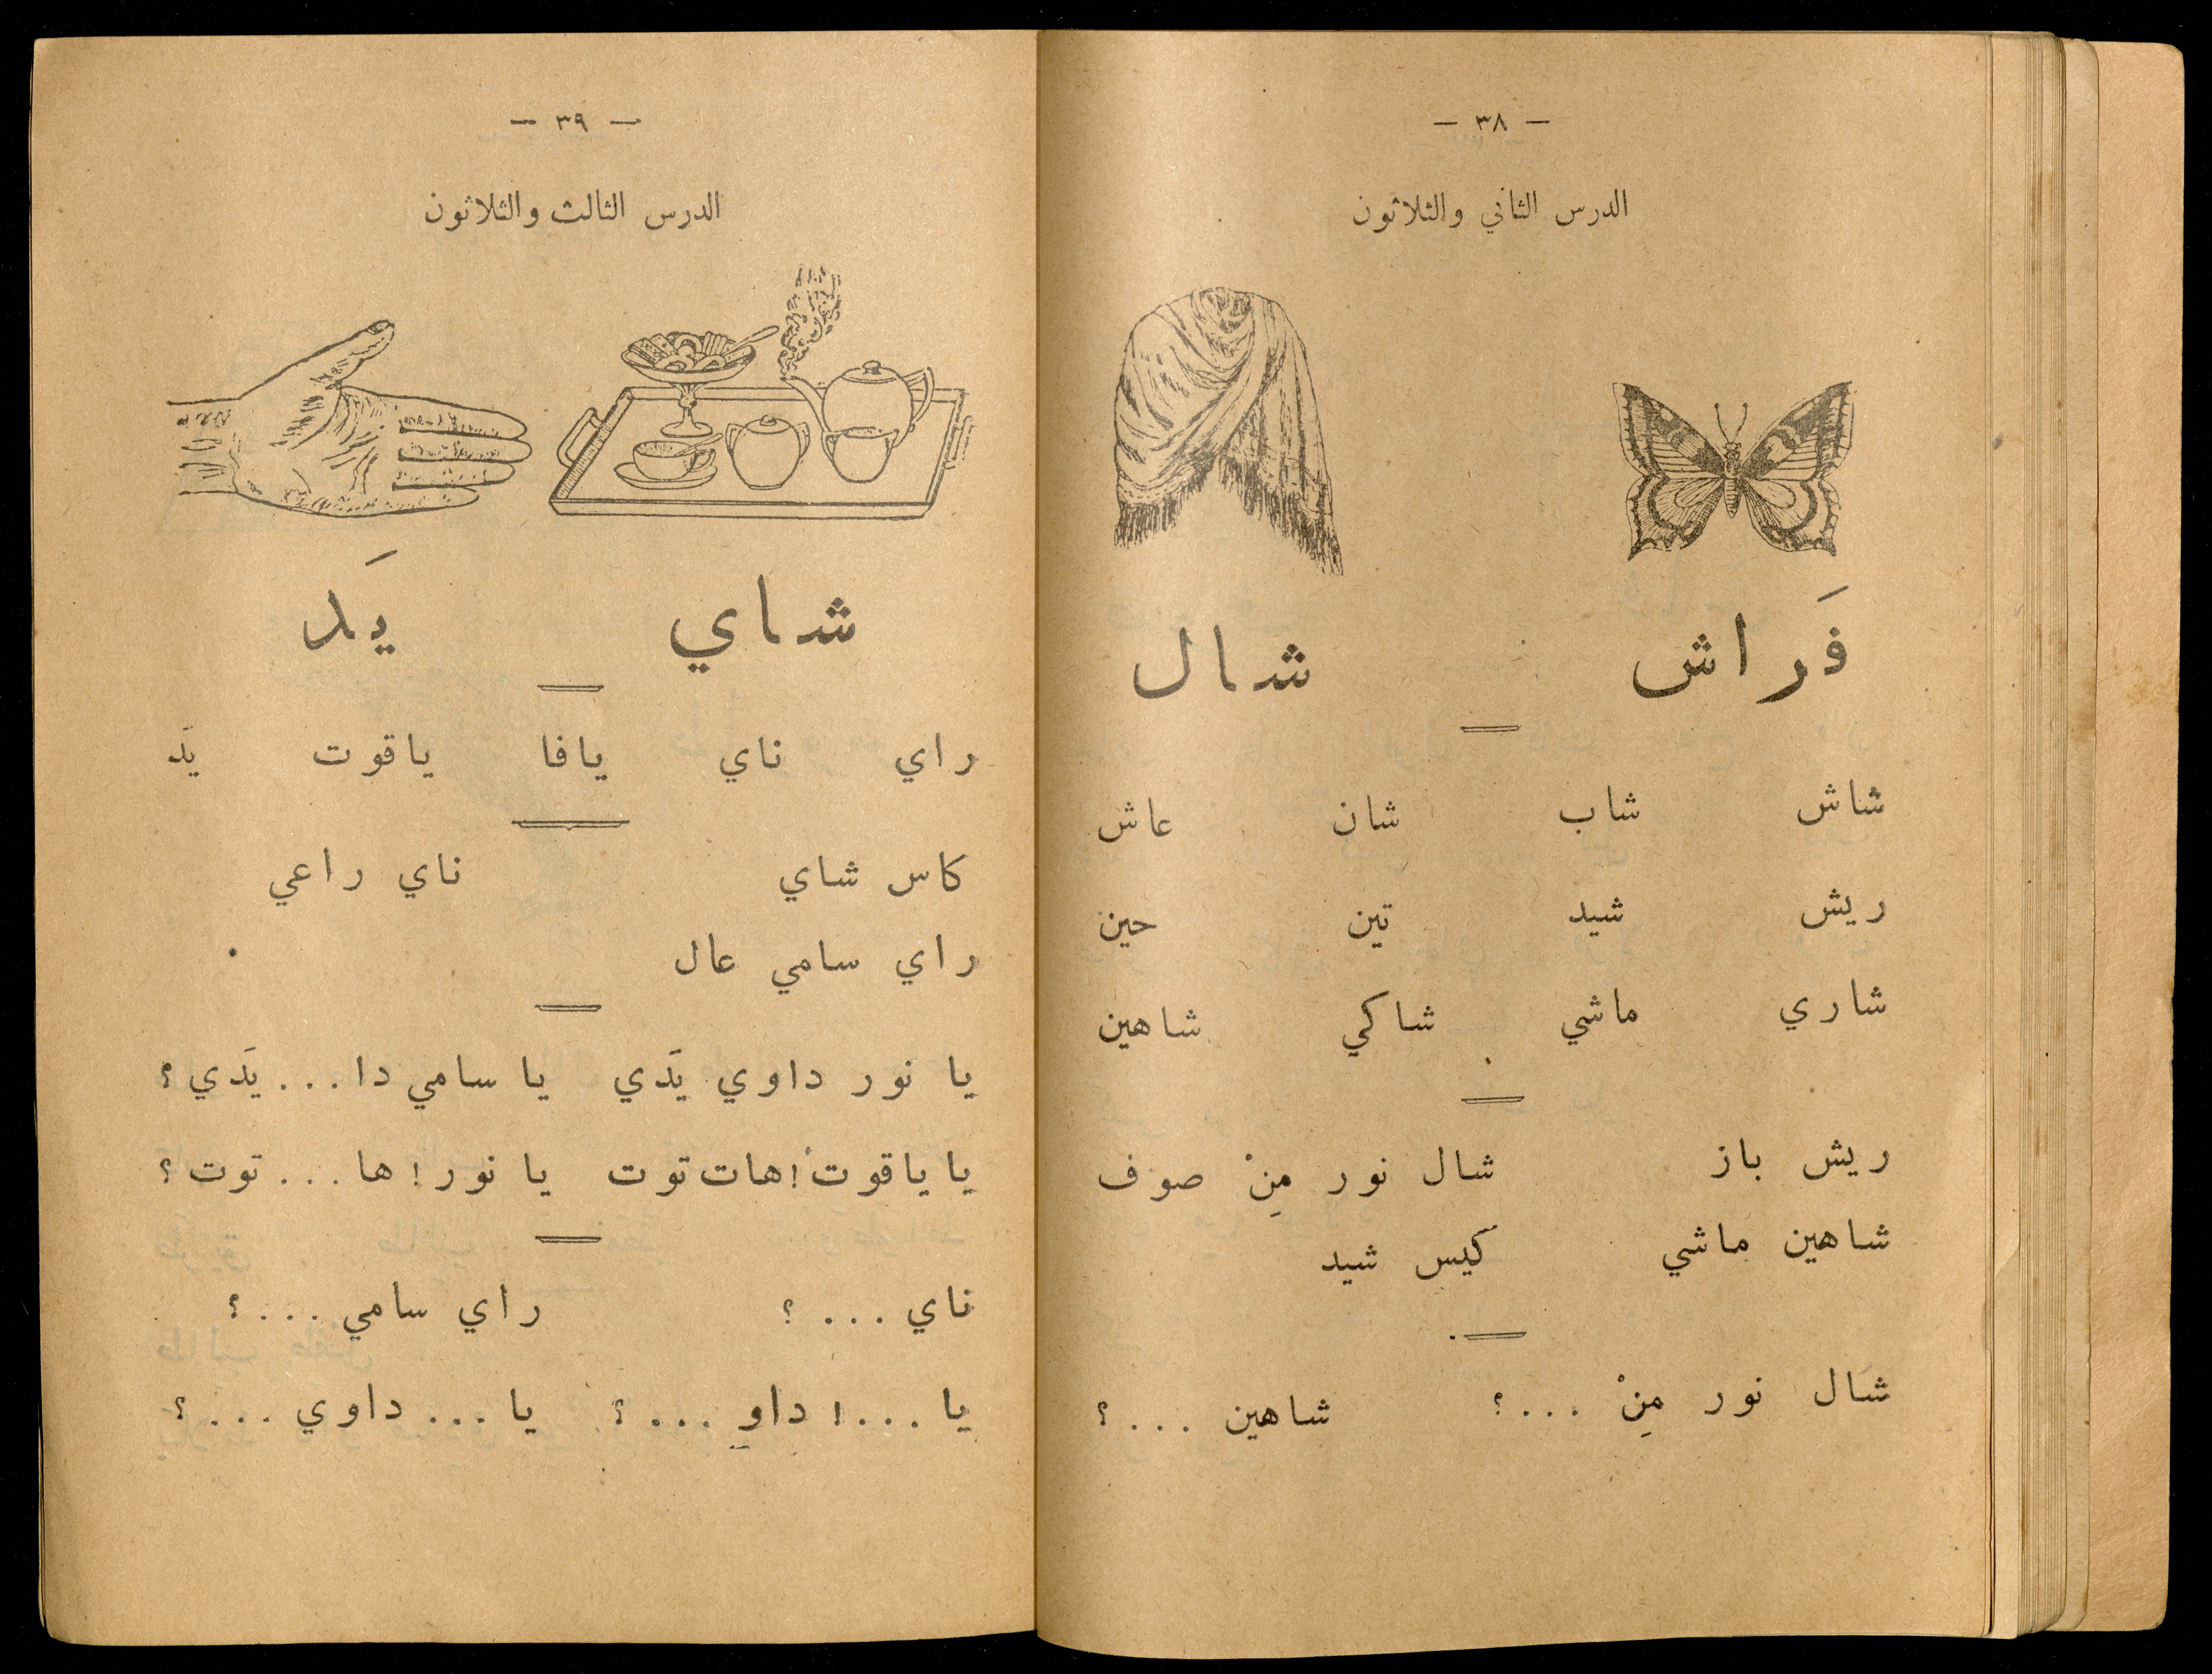 — ٣٨ —
الدرس الثاني والثلاثون
فَراش شال
شاش شاب شان عاش
ريش شيد تين حين
شاري ماشي شاكي شاهين
ريش باز شال نور مِنْ صوف
شاهين ماشي كيس شيد
شال نور مِنْ ...؟ شاهين ...؟
— ٣٩ —
الدرس الثالث والثلاثون
شاي يَد
راي ناي يافا ياقوت يَد
كاس شاي ناي راعي
راي سامي عال
يا نور داوي يَدي يا سامي دا...يَدي؟
يا ياقوت! هات توت يا نور! ها...توت؟
ناي ...؟ راي سامي ...؟
يا ...! داوِ ...؟ يا ... داوي ...؟